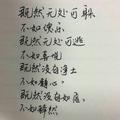 既然无处可躲
不如傻乐
既然无处可逃
不如喜悦
既然没有净土
不如静心
既然没有如愿
不如释然